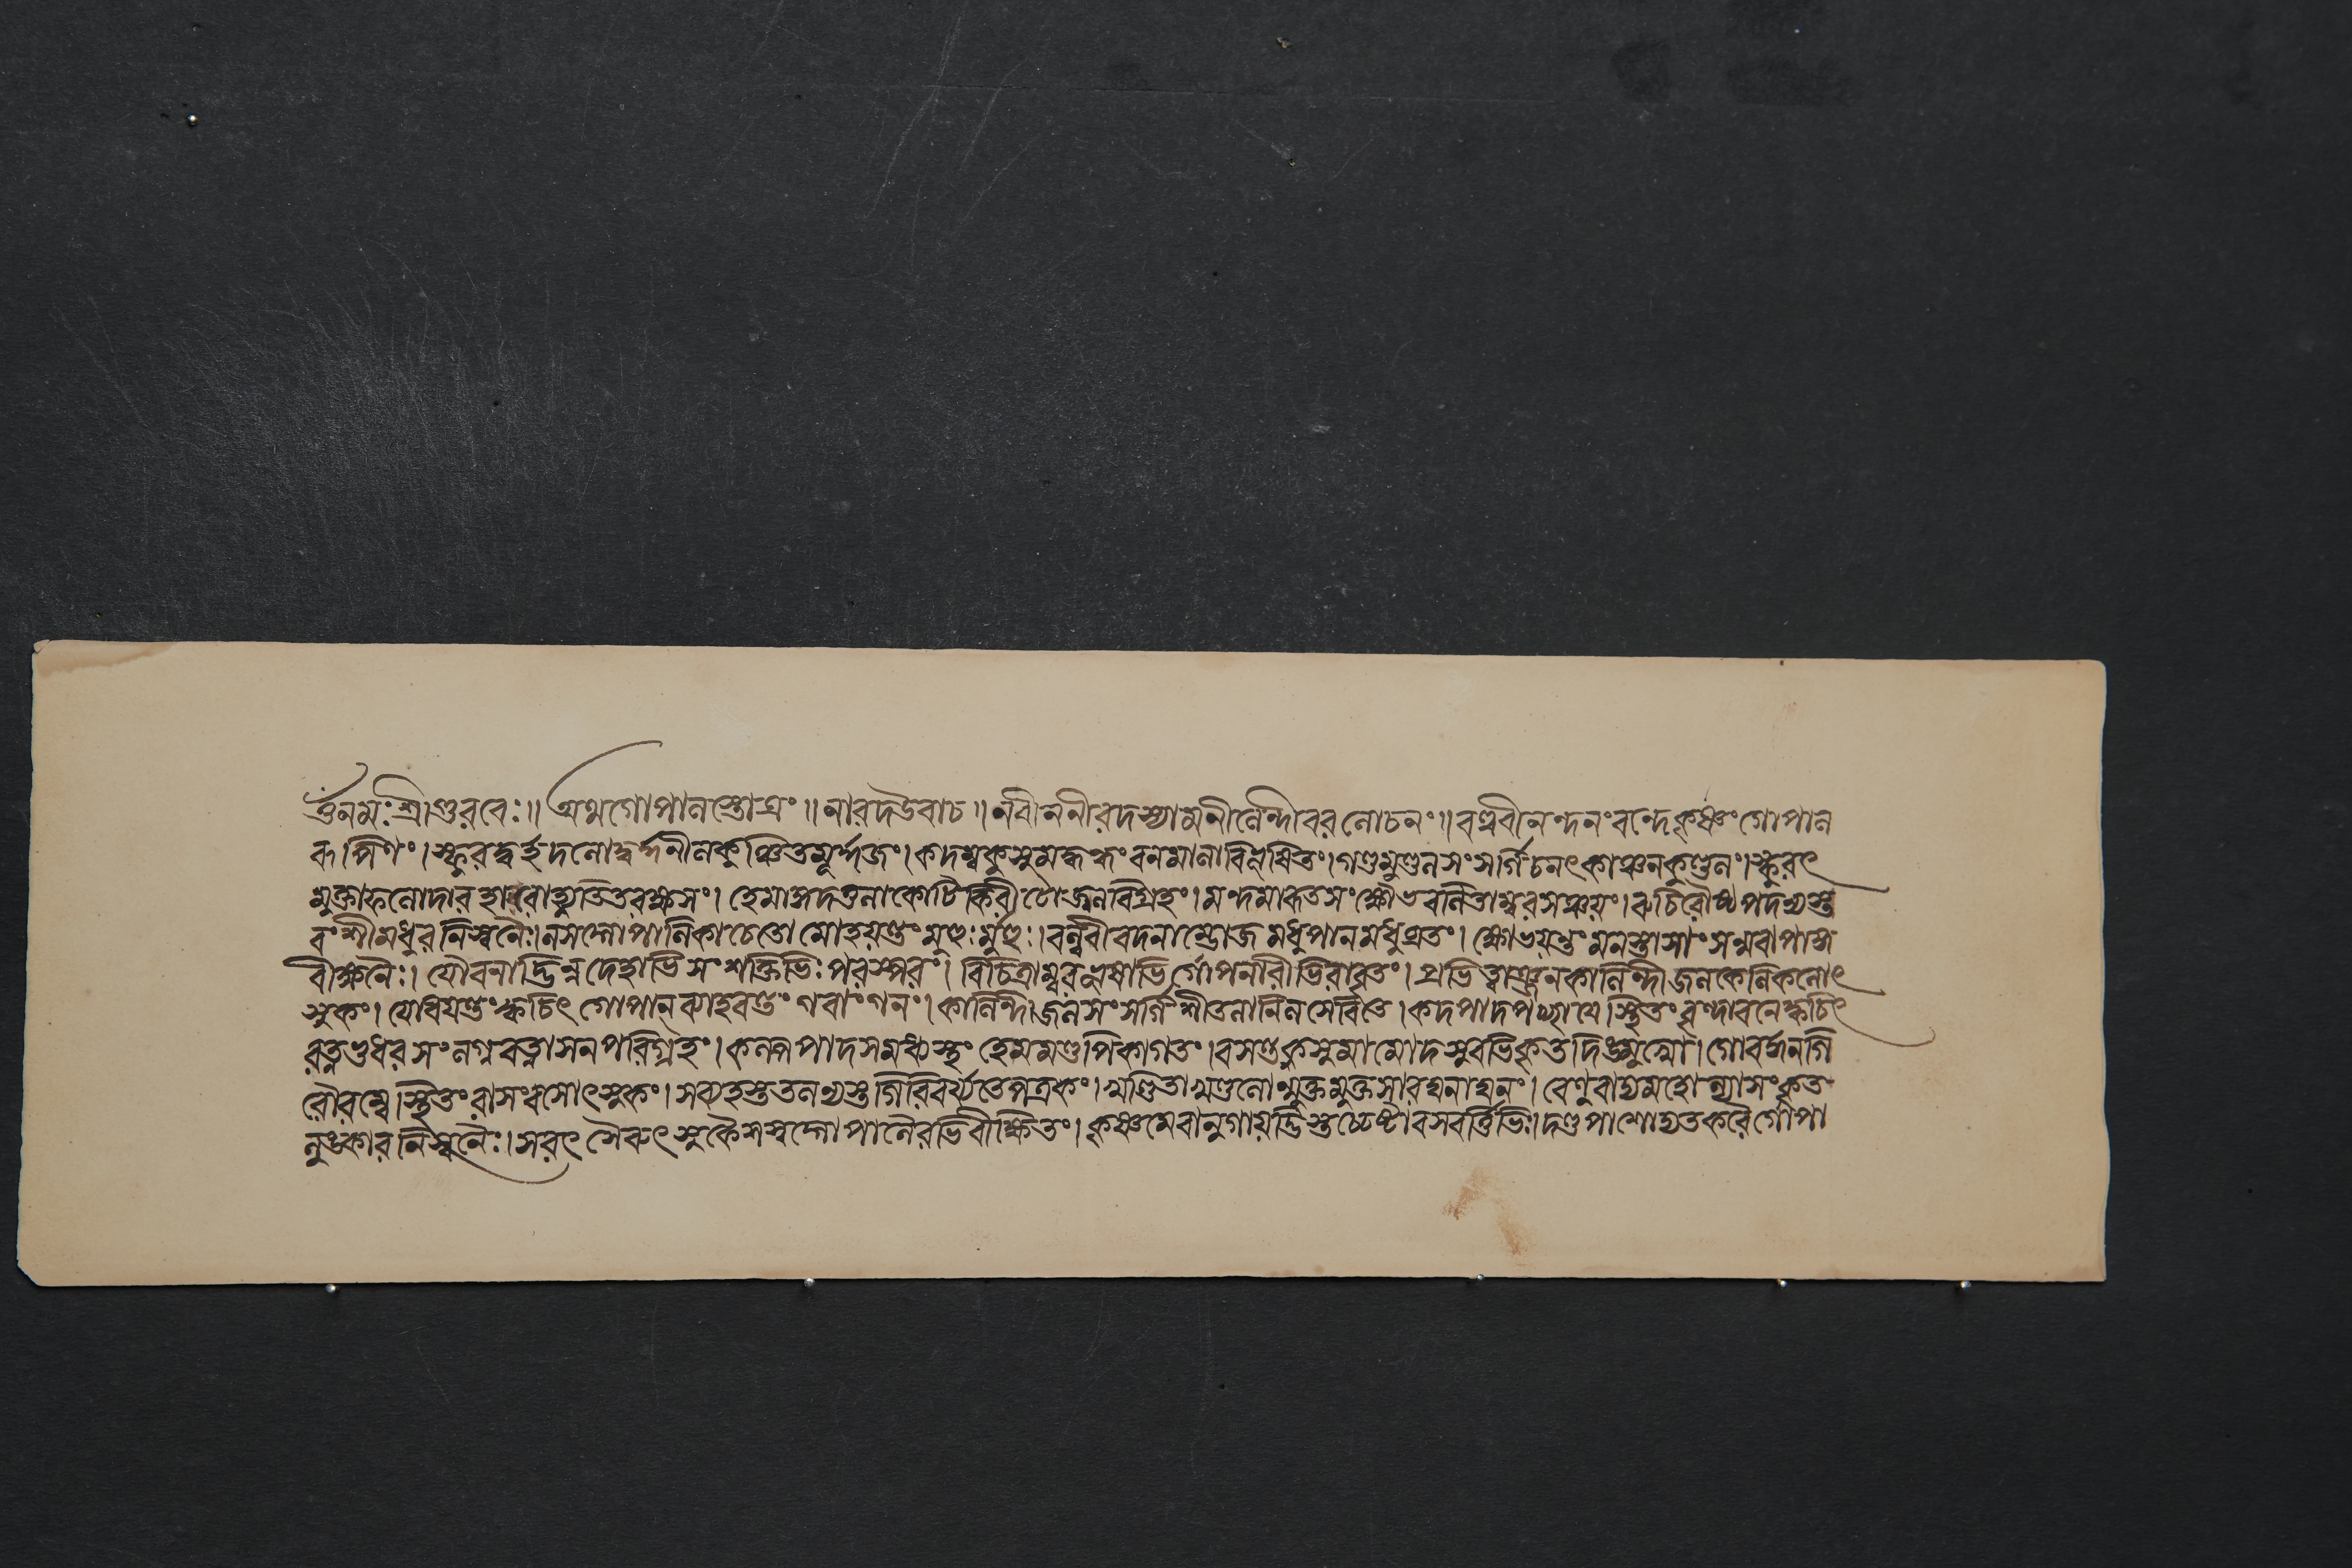 ওঁনমঃশ্রীগুরবেঃ॥ অথগোপালস্তোত্রং॥ নারদউবাচ॥ নবীননীরদশ্যামনীলেন্দীবরলোচনং॥ বল্লবীনন্দনংবন্দেকৃষ্ণংগোপাল
রূপিণং। স্ফুরদ্বর্হদলোদ্বর্দ্দনীলকুঞ্চিতমূর্দ্দজং। কদম্বকুসুমদ্বদ্ধংবনমালাবিভূষিতং। গণ্ডমুণ্ডলসংসর্গিচলৎকাঞ্চনকুণ্ডলং। স্ফুরৎ
মুক্তাফলোদারহারোদ্যুতিতবক্ষসং। হেমাঙ্গদতুলাকোটিকিরীটোজ্জ্বলবিগ্রহং। মন্দমারুতসংক্ষোভবলিতাম্বরসঞ্চয়ং। রুচিরৌষ্ঠপদন্যস্ত
বংশীমধুরনিস্বনৈঃ। লসদ্গোপালিকাচেতো মোহয়ন্তংমুহুঃর্মুহুঃ। বল্লবীবদনাম্ভোজমধুপানমধুব্রতং। ক্ষোভয়ন্তংমনস্তাসাংসস্মরাপাঙ্গ
বীক্ষনৈঃ। যৌবনাদ্ভিন্নদেহাভিসংশক্তিভিঃপরস্পরং। বিচিত্রাম্বরভূষাভির্গোপনারীভিরাবৃতং। প্রভিন্নাঞ্জনকালিন্দীজলকেলিকলোৎ
সুকং। যোধয়ন্তংক্বচিৎগোপানব্যাহরন্তংগবাংগনং। কালিন্দীজলসংসর্গিশীতলানিলসেবিতে। কদপাদপচ্ছায়েস্থিতংবৃন্দাবনেক্বচিৎ
রত্নভুধরসংলগ্নরত্নাসনপরিগ্রহং। কল্পপাদসমধ্যস্থংহেমমণ্ডপিকাগতং। বসন্তকুসুমামোদসুরভিকৃতদিঙ্মুখে। গোবর্দ্ধনগি
রৌরম্যেস্থিতংরাসংরসোৎসুকং। সব্যহস্ততলন্যস্তগিরিবর্য্যতেপত্রকং। খণ্ডিতাখণ্ডলোন্মুক্তমুক্তসারঘনাঘনং। বেণুবাদ্যমহোল্লাসংকৃত
নুঙ্কারনিস্বনৈঃ। সরৎসৈরুৎসুকৈশশ্বদ্গোপালৈরভিবীক্ষিতং। কৃষ্ণমেবানুগায়দ্ভিস্তচ্চেষ্টাবসবর্ত্তিভিঃ। দণ্ডপাশোদ্যতকরৈর্গোপা